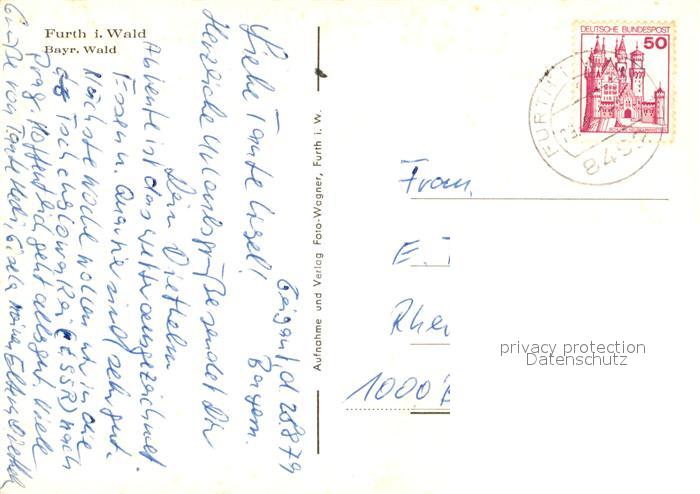 Furth i. Wald
Bayr. Wald
Aufnahme und Verlag Foto-Wagner, Furth i. W.
d 28.8.79
Bayern.
Liebe Tante Liesel!
Herzliche Urlaubsgrüße sendet Dir
Dein Diethelm
Ab heute ist das Wetter ausgezeichnet
Essen u. Quartier sind sehr gut.
Nächste Woche wollen wir in die
Tschechoslowakei (CSSR) nach
Prag. Hoffentlich geht alles gut. Viele
Grüße von Tante Gisela meinen Eltern Diethelm
DEUTSCHE BUNDESPOST
50
FURTH I
8
Frau
E.
Rhe
1000 B
privacy protection
Datenschutz